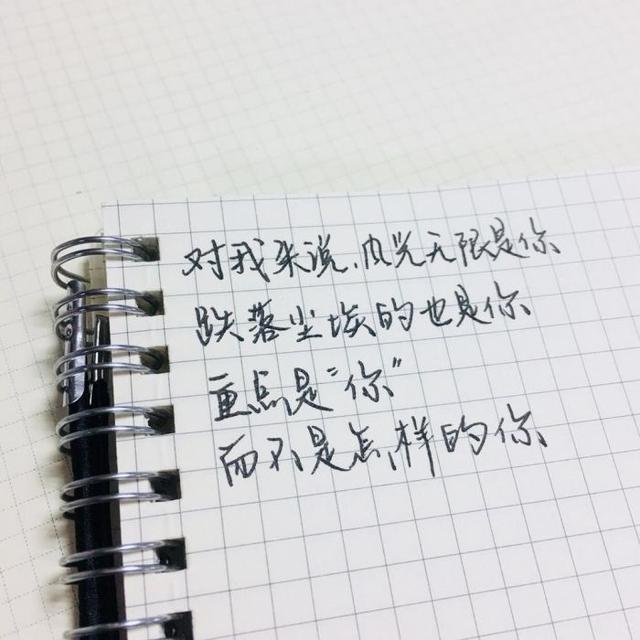 对我来说、风光无限是你
跌落尘埃的也是你
重点是“你”
而不是怎样的你